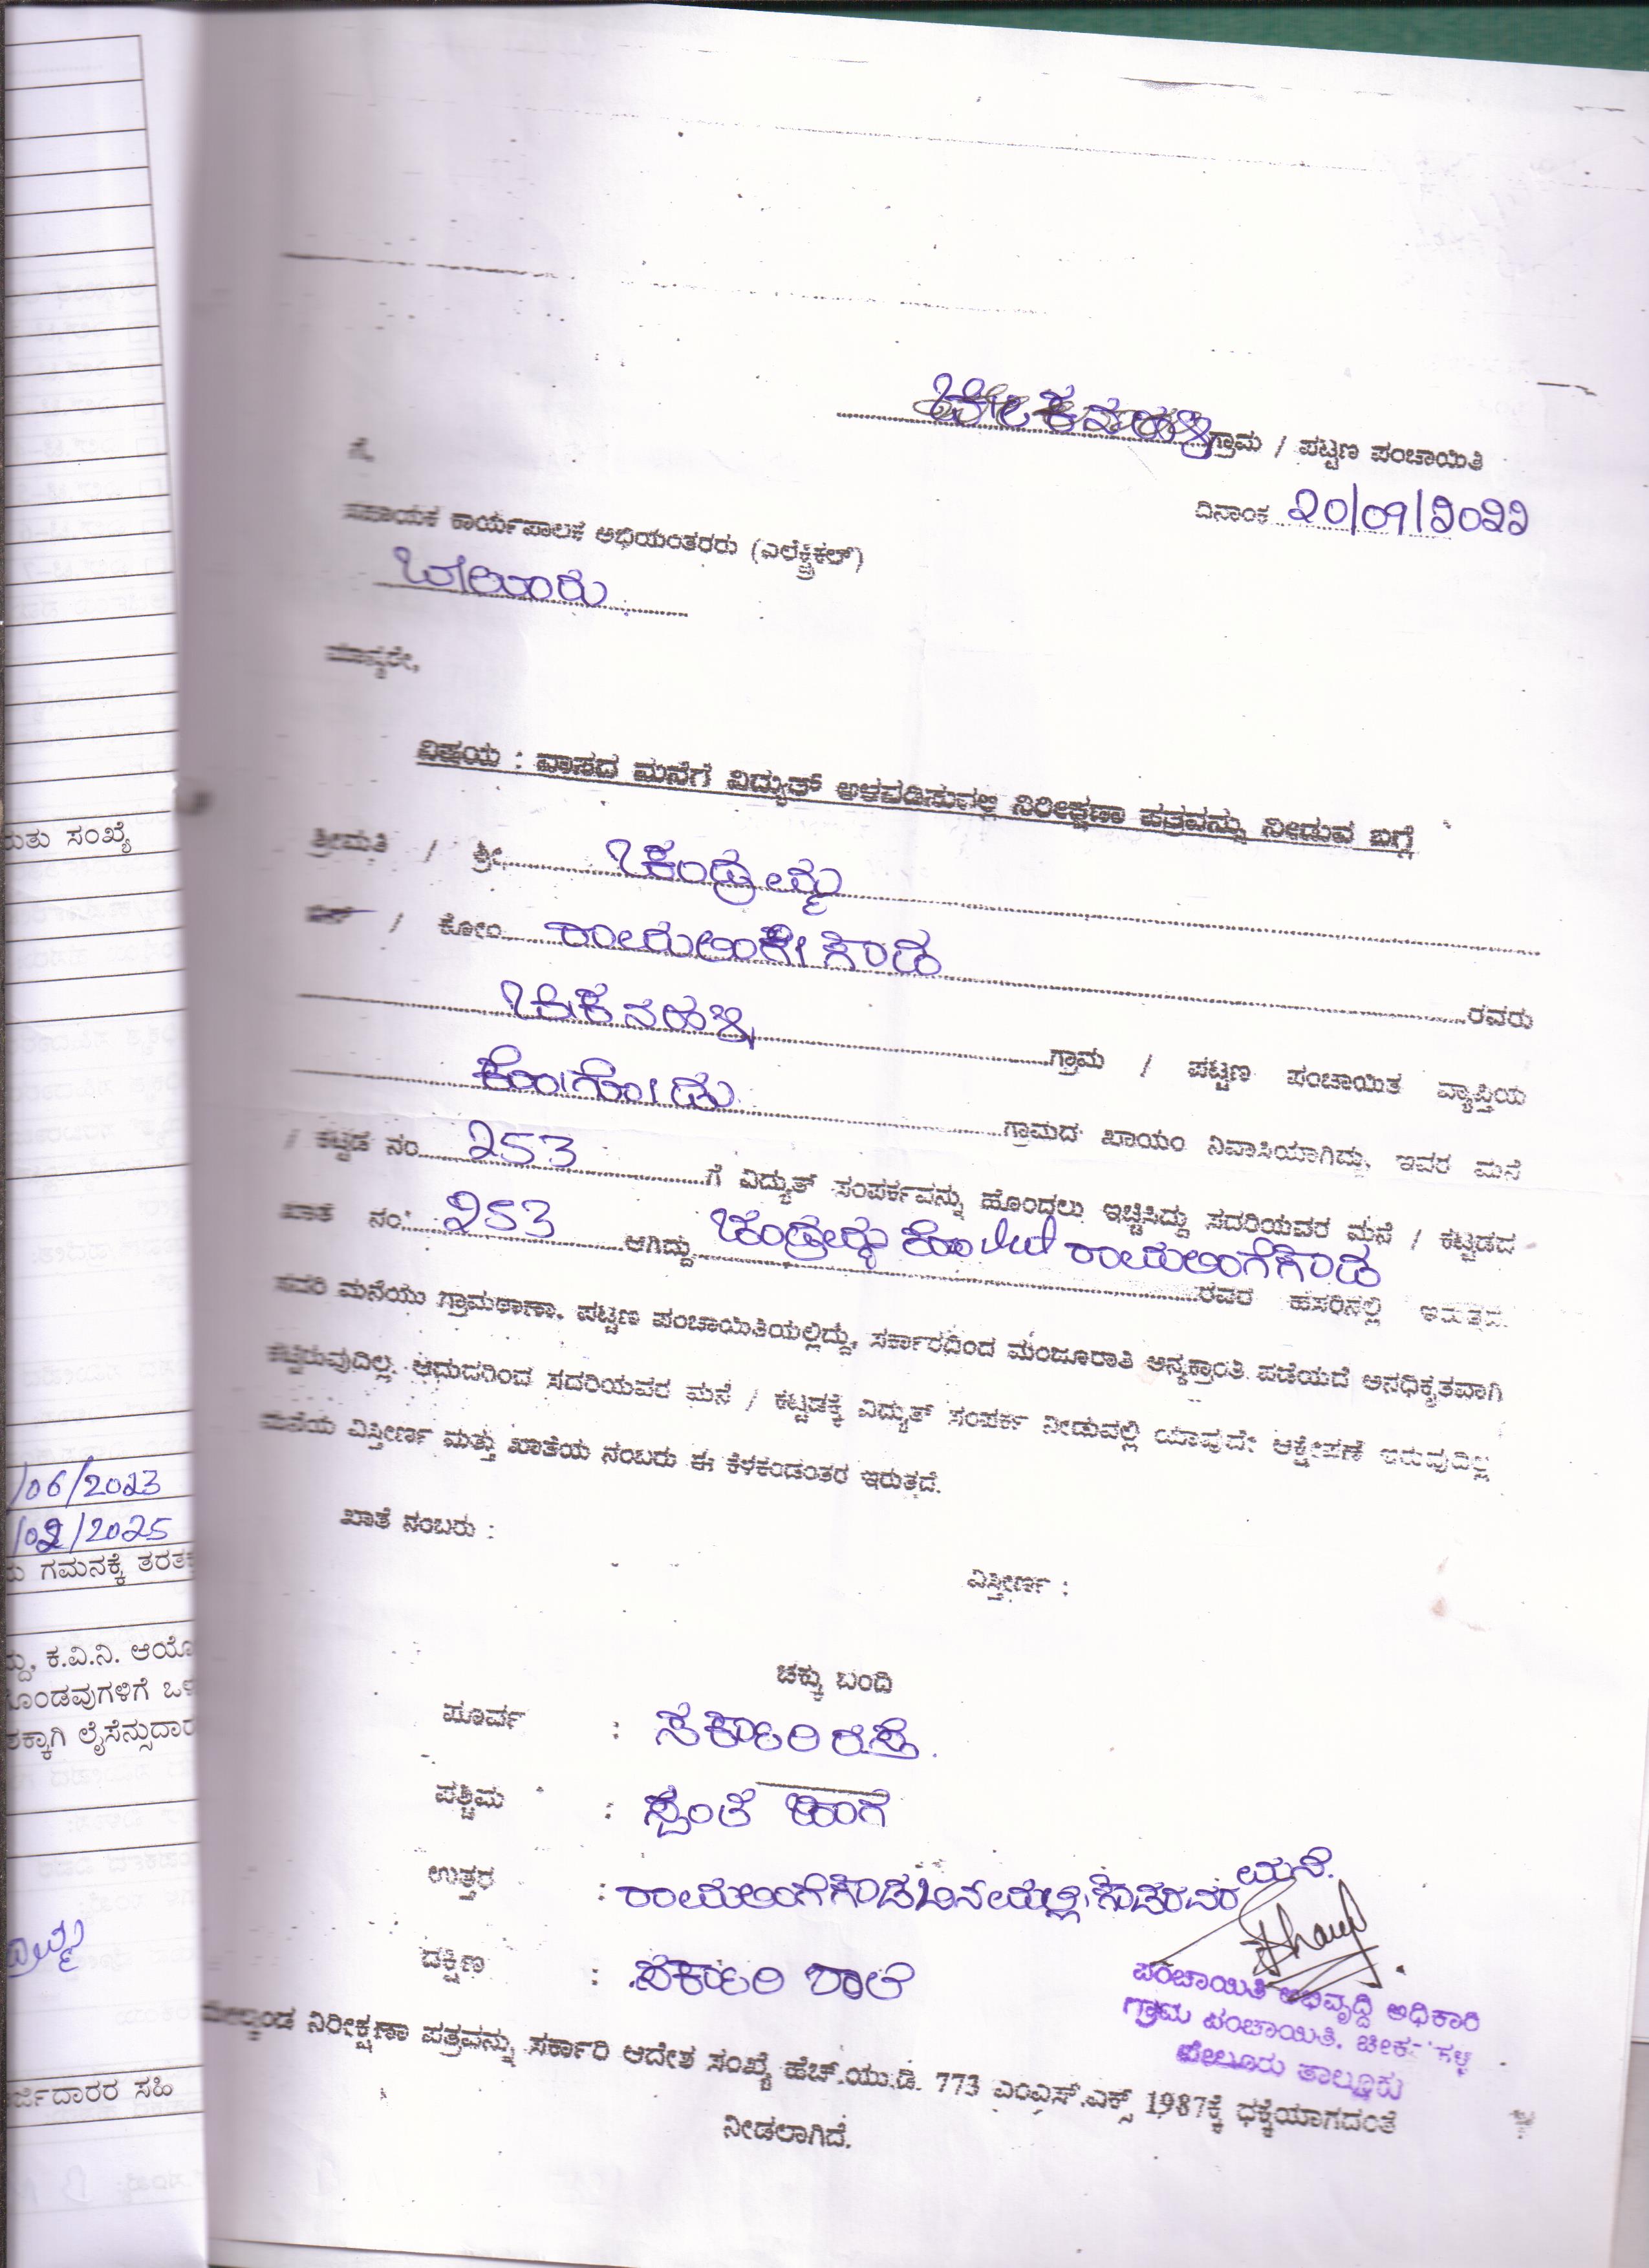 ಚೀಕನಹಳ್ಳಿ ಗ್ರಾಮ / ಪಟ್ಟಣ ಪಂಚಾಯಿತಿ
ದಿನಾಂಕ 20/09/2022
ಗೆ,
ಸಹಾಯಕ ಕಾರ್ಯಪಾಲಕ ಅಭಿಯಂತರರು (ಎಲೆಕ್ಟ್ರಿಕಲ್)
ಬೇಲೂರು
ಮಾನ್ಯರೇ,
ವಿಷಯ : ವಾಸದ ಮನೆಗೆ ವಿದ್ಯುತ್ ಅಳವಡಿಸುವಲ್ಲಿ ನಿರೀಕ್ಷಣಾ ಪತ್ರವನ್ನು ನೀಡುವ ಬಗ್ಗೆ
ಶ್ರೀಮತಿ / ಶ್ರೀ ಚಂದ್ರಮ್ಮ
ಬಿನ್ / ಕೋಂ ರಾಮಲಿಂಗೇಗೌಡ ರವರು
ಚೀಕನಹಳ್ಳಿ ಗ್ರಾಮ / ಪಟ್ಟಣ ಪಂಚಾಯಿತ ವ್ಯಾಪ್ತಿಯ
ಕೋಗೋಡು ಗ್ರಾಮದ ಖಾಯಂ ನಿವಾಸಿಯಾಗಿದ್ದು, ಇವರ ಮನೆ
/ ಕಟ್ಟಡ ನಂ 253 ಗೆ ವಿದ್ಯುತ್ ಸಂಪರ್ಕವನ್ನು ಹೊಂದಲು ಇಚ್ಚಿಸಿದ್ದು ಸದರಿಯವರ ಮನೆ / ಕಟ್ಟಡದ
ಖಾತೆ ನಂ: 253 ಆಗಿದ್ದು ಚಂದ್ರಮ್ಮ ಕೋಂ ರಾಮಲಿಂಗೆಗೌಡ ರವರ ಹೆಸರಿನಲ್ಲಿ ಇರುತ್ತದೆ.
ಸದರಿ ಮನೆಯು ಗ್ರಾಮಠಾಣಾ, ಪಟ್ಟಣ ಪಂಚಾಯಿತಿಯಲ್ಲಿದ್ದು, ಸರ್ಕಾರದಿಂದ ಮಂಜೂರಾತಿ ಅನ್ಯಕ್ರಾಂತಿ ಪಡೆಯದೆ ಅನಧಿಕೃತವಾಗಿ
ಕಟ್ಟಿರುವುದಿಲ್ಲ. ಆದುದರಿಂದ ಸದರಿಯವರ ಮನೆ / ಕಟ್ಟಡಕ್ಕೆ ವಿದ್ಯುತ್ ಸಂಪರ್ಕ ನೀಡುವಲ್ಲಿ ಯಾವುದೇ ಆಕ್ಷೇಪಣೆ ಇರುವುದಿಲ್ಲ
ಮನೆಯ ವಿಸ್ತೀರ್ಣ ಮತ್ತು ಖಾತೆಯ ನಂಬರು ಈ ಕೆಳಕಂಡಂತರ ಇರುತ್ತದೆ.
ಖಾತೆ ನಂಬರು :
ವಿಸ್ತೀರ್ಣ :
ಚಕ್ಕು ಬಂದಿ
ಪೂರ್ವ : ಸರ್ಕಾರಿ ರಸ್ತೆ.
ಪಶ್ಚಿಮ : ಸ್ವಂತ ಜಾಗ
ಉತ್ತರ : ರಾಮಲಿಂಗೆಗೌಡ ಬಿನ್ ಮಲ್ಲೇಗೌಡರವರ ಮನೆ.
ದಕ್ಷಿಣ : ಸರ್ಕಾರಿ ಶಾಲೆ
ಪಂಚಾಯಿತಿ ಅಭಿವೃದ್ಧಿ ಅಧಿಕಾರಿ
ಗ್ರಾಮ ಪಂಚಾಯಿತಿ, ಚೀಕನಹಳ್ಳಿ
ಬೇಲೂರು ತಾಲ್ಲೂಕು
ಮೇಲ್ಕಂಡ ನಿರೀಕ್ಷಣಾ ಪತ್ರವನ್ನು ಸರ್ಕಾರಿ ಆದೇಶ ಸಂಖ್ಯೆ ಹೆಚ್.ಯು.ಡಿ. 773 ಎಂಎಸ್.ಎಕ್ಸ್ 1987ಕ್ಕೆ ಧಕ್ಕೆಯಾಗದಂತೆ
ನೀಡಲಾಗಿದೆ.
ರುತು ಸಂಖ್ಯೆ
/06/2023
/02/2025
ಗಮನಕ್ಕೆ
ಕ.ವಿ.ನಿ.